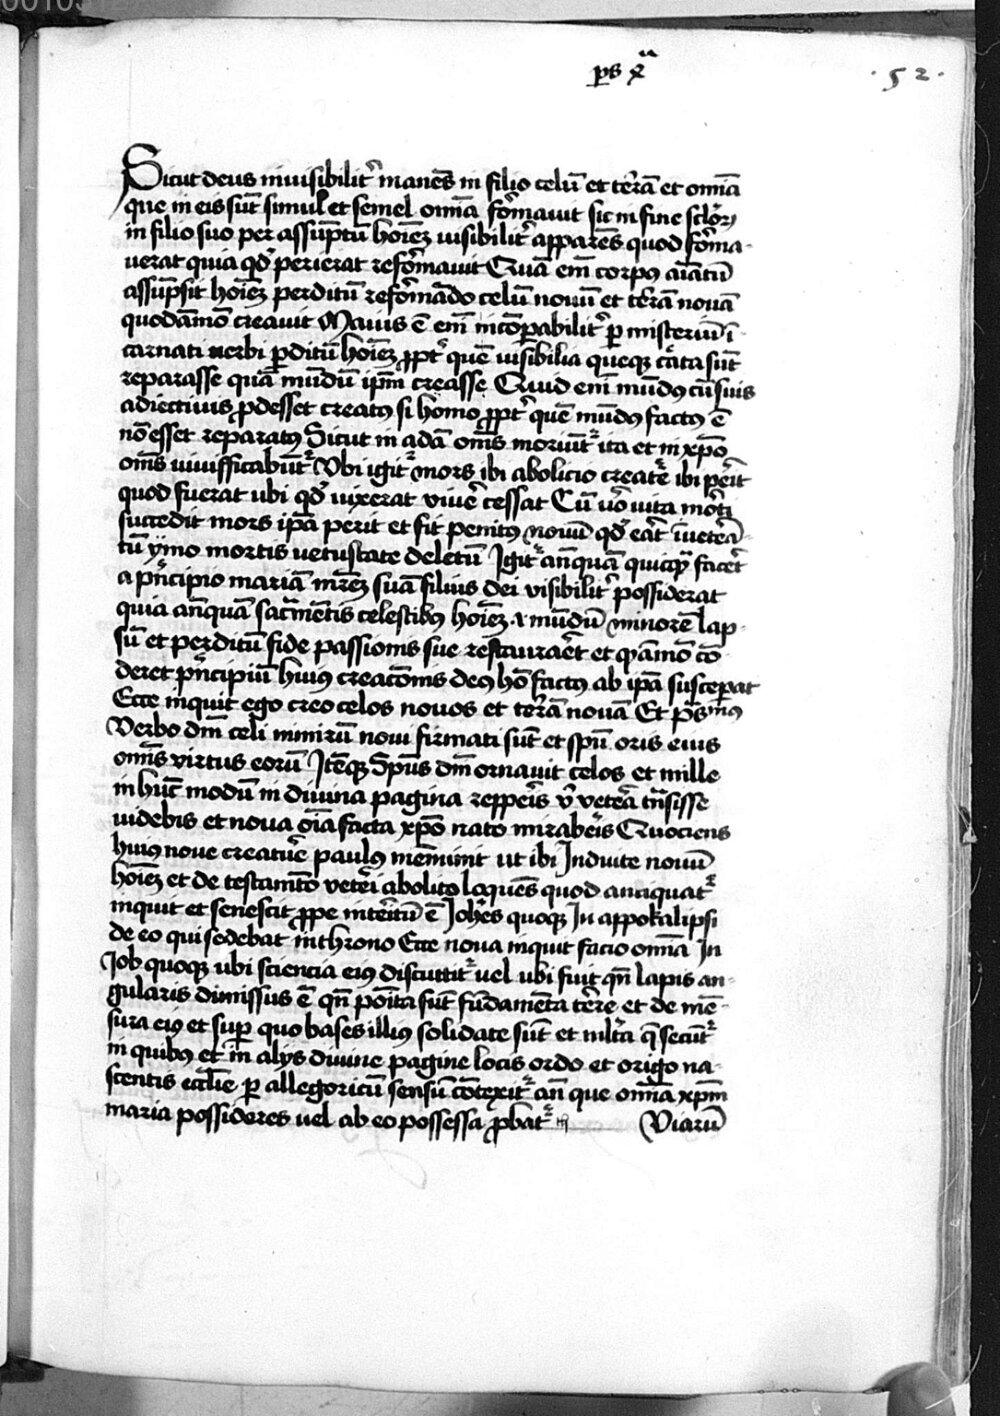 ps xᵃ
·52·
Sicut deus inuisibilit͛ manēs in filio celū et terrā et omīa
que in eis sūt simul et semel omīa formauit sic in fine sclor͛
in filio suo per assūptū hoīeʒ uisibilit͛ apparēs quod forma-
uerat quia qd͛ perierat reformauit Quā em̄ corpꝰ aīatū
assūpsit hoīeʒ perditū reformādo celū nouū et terrā nouā
quodāmō creauit Maius ē em̄ incōpabilit͛ ꝑ misteriū ī-
carnati uerbi ꝑditū hoīeʒ ꝓpt͛ quē uisibilia queqʒ cāta sūt
reparasse quā mūdū ip̄m creasse Quid em̄ mūdꝰ cū suis
adiectiuis ꝓdesset creatꝰ si homo ꝓpt͛ quē mūdꝰ factꝰ ē
nō esset reparatꝰ Sicut in adā om̄s moriūt͛ ita et in xp̄o
om̄s uiuifficabūt͛ Vbi igit͛ mors ibi abolicio creat͛e ibi perit
quod fuerat ubi qd͛ uixerat viue͛ cessat Cū u͛o uita morti
succedit mors ip̄a perit et fit penitꝰ nouū qd͛ eāt īuetera-
tū ymo mortis uetustate deletū Igit͛ anq̄uā quicq̄ facet͛
a p͛ncipio mariā mr̄eʒ suā filius dei visibilit͛ possiderat
quia anq̄uā sac͛mētis celestibꝰ hoīeʒ ⁊ mūdū minorē lap-
sū et perditū fide passionis sue restauraet͛ et qāmō cō-
deret p͛ncipiū huiꝰ creacōnis deꝰ hō factꝰ ab ip̄a susceperat
Ecce inquit ego creo celos nouos et terrā nouā Et ps̄mꝰ
Verbo dn̄i celi nimirū noui firmati sūt et spū oris eius
om̄is virtus eorū Itēqʒ Spūs dn̄i ornauit celos et mille
in hūc modū in diuina pagina repperis v͛ vetera trāsisse
uidebis et noua oīa facta xp̄o nato miraberis Quociens
huiꝰ noue creature paulꝰ meminit ut ibi Induite nouū
hoīeʒ et de testamēto veteri abolito loquēs quod antiquat͛
inquit et senescit ꝓpe interitū ē Johēs quoqʒ In appokalipsi
de eo qui sedebat in throno Ecce noua inquit facio omīa In
Job quoqʒ ubi sciencia eiꝰ discutit͛ uel ubi fuit qn̄ lapis an-
gularis dimissus ē qn̄ poīta sūt fūdamēta terre et de mē-
sura eiꝰ et sup quo bases illiꝰ solidate sūt et ml͛ta q̄ secūt͛
in quibꝰ et in alijs diuine pagine locis ordo et origo na-
scentis eccl̄ie ꝑ allegoricū sensū cōtexit͛ an̄ que omīa xp̄m
maria possideres uel ab eo possessa ꝓbat͛ Viarū